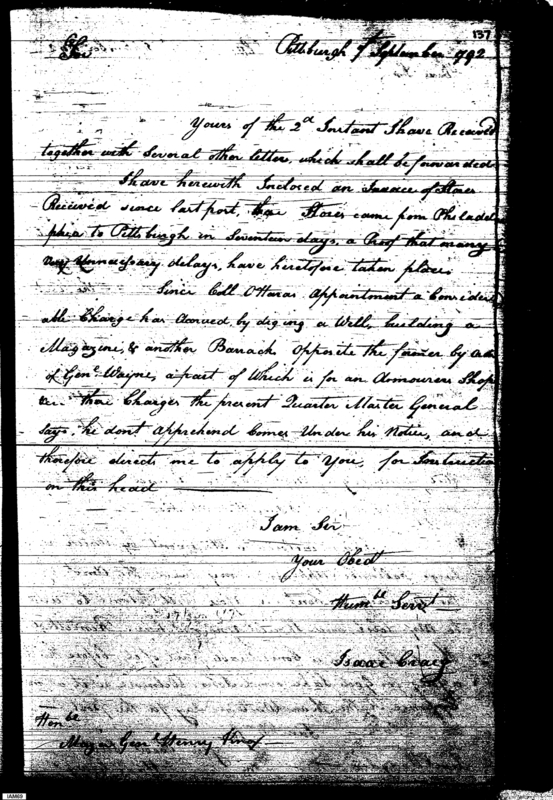 137
Sir
Pittsburgh 7th September 1792
Yours of the 2d Instant I have Received
together with Several other letters, which shall be forwarded
I have herewith Inclosed an Invoice of Stores
Received since last post, these Stores came from Philadel
phia to Pittsburgh in Seventeen days, a Proof that many
very Unnecessary delays, have heretofore taken place.
Since Coll O'Haras Appointment a Consider
able Charge has Accrued by diging a Well, building a
Magazine, & another Barrack Opposite the former by Order
of Genl Wayne, a part of Which is for an Armourers Shop
these Charges the present Quarter Master General
says, he dont apprehend Comes Under his Notice, and
therefore directs me to apply to You, for Instruction
on this head
I am Sir
Your Obedt
Humble Servt
Isaac Craig
Honble
Major Genl Henry Knox
IAM69